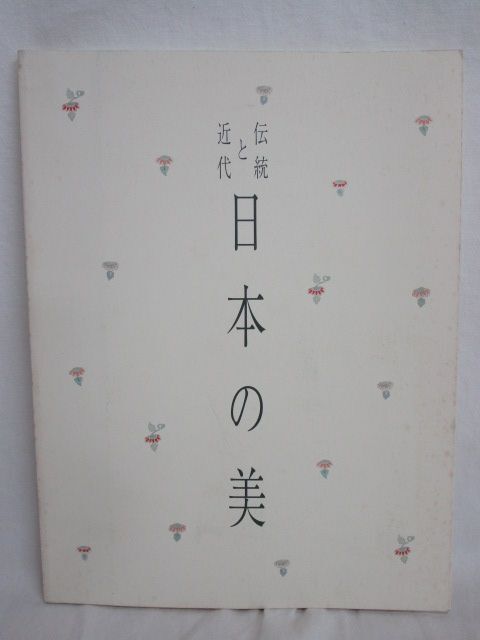 伝統
と
近代
日本の美